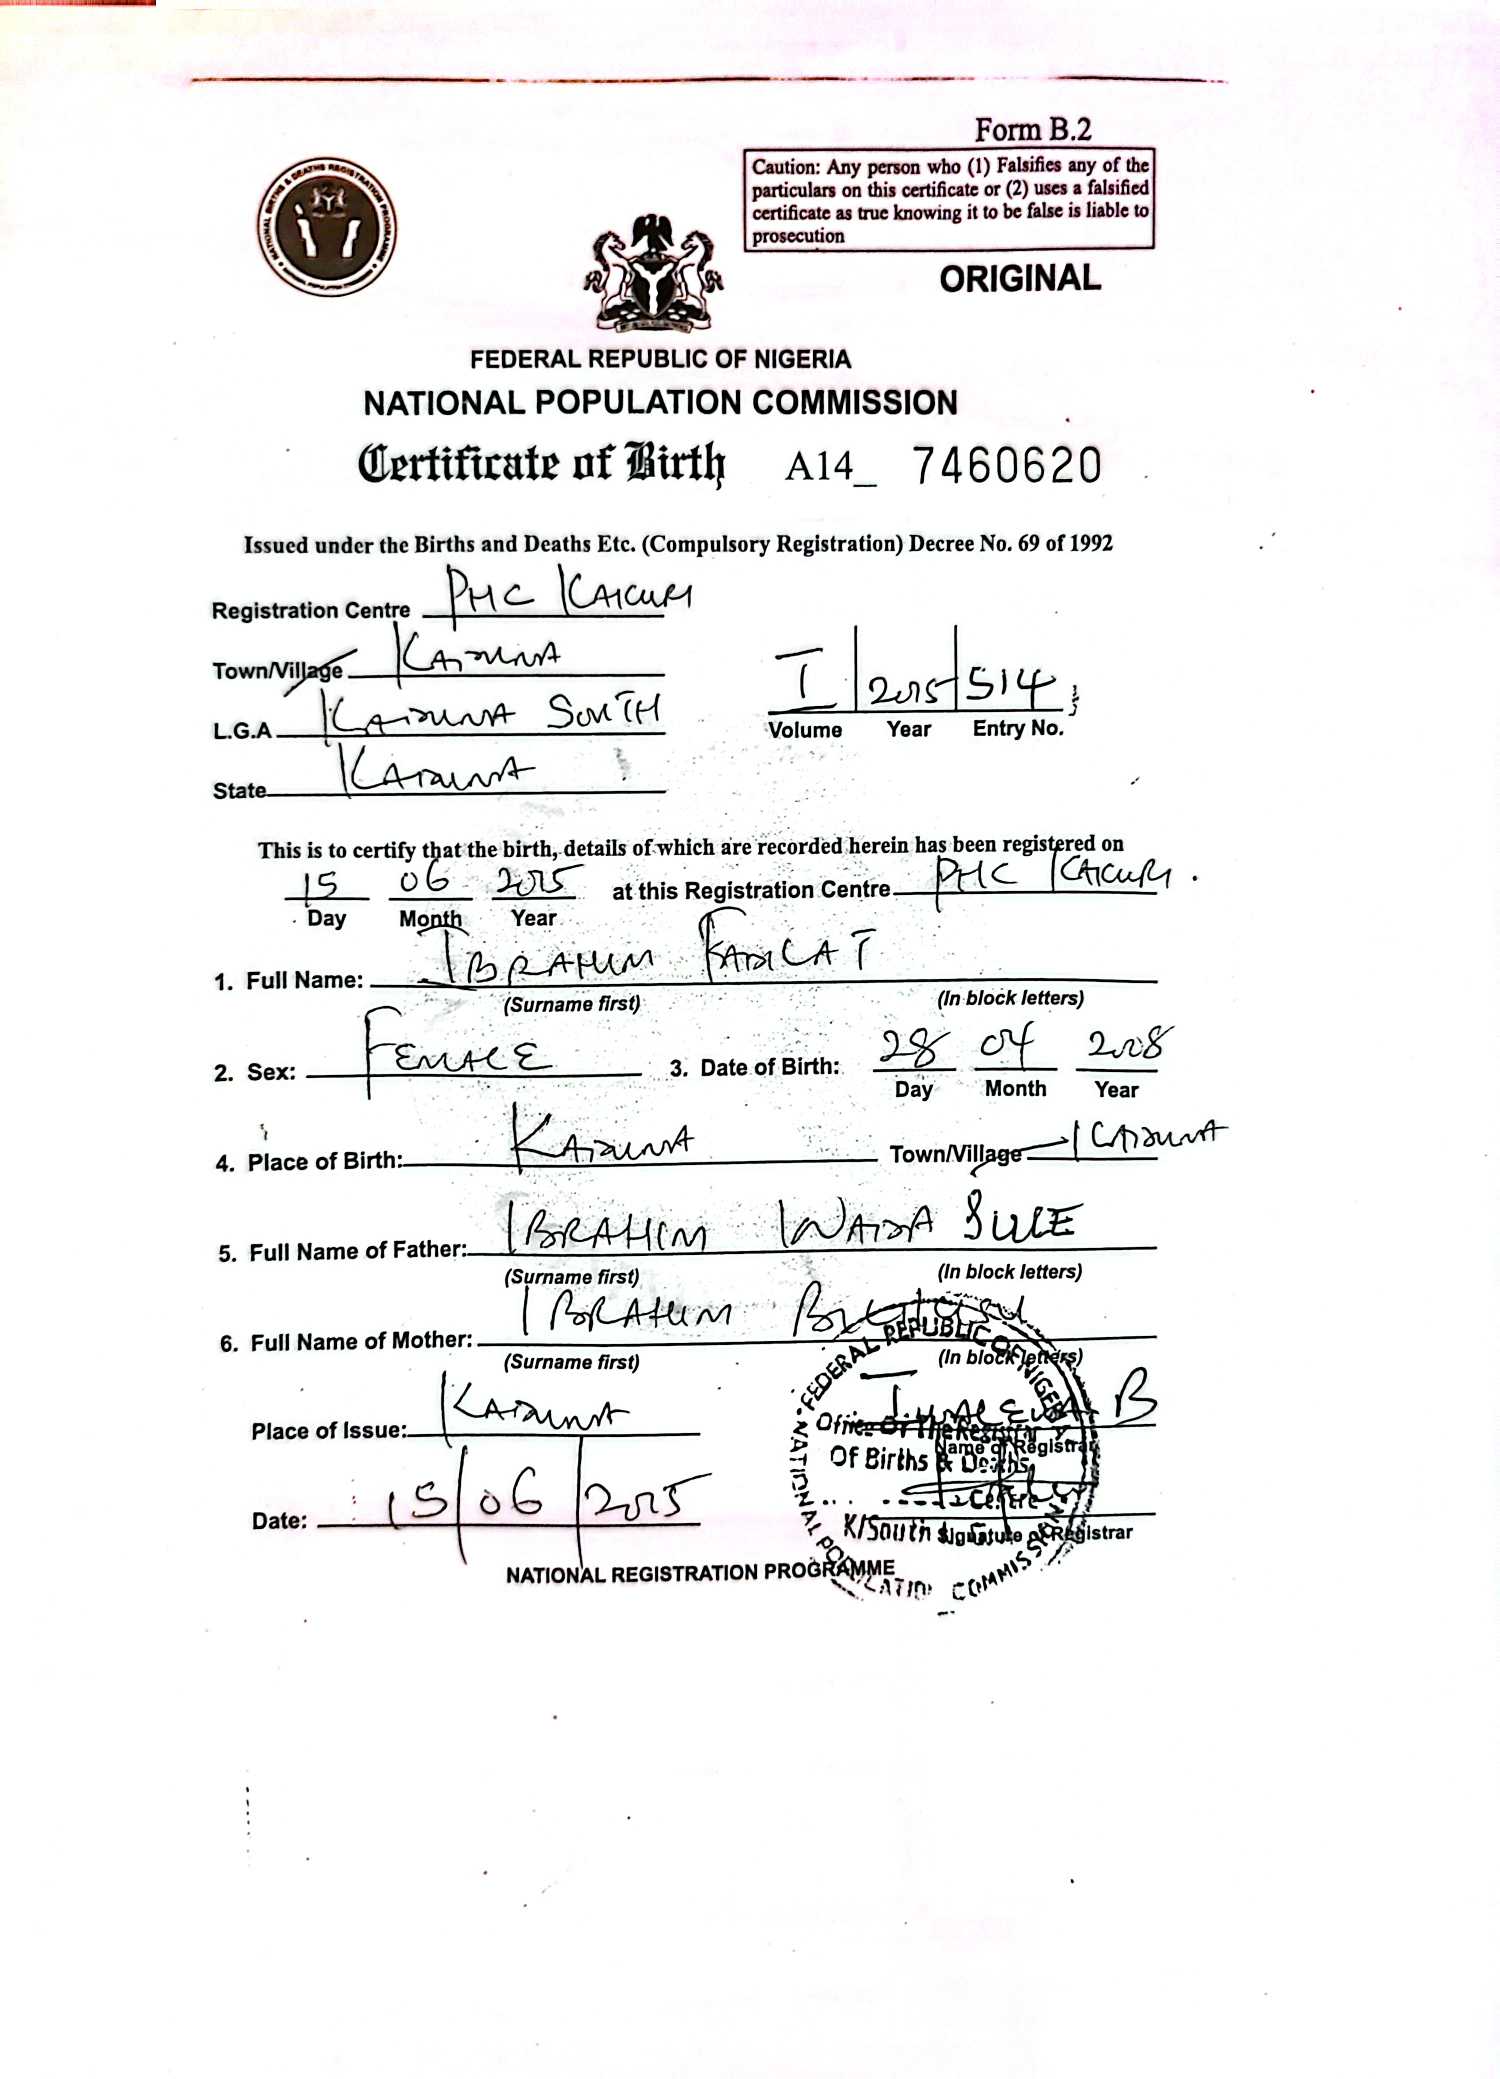 Form B.2
Caution: Any person who (1) Falsifies any of the
particulars on this certificate or (2) uses a falsified
certificate as true knowing it to be false is liable to
prosecution
NATIONAL BIRTHS & DEATHS REGISTRATION PROGRAMME
ORIGINAL
FEDERAL REPUBLIC OF NIGERIA
NATIONAL POPULATION COMMISSION
Certificate of Birth A14_ 7460620
Issued under the Births and Deaths Etc. (Compulsory Registration) Decree No. 69 of 1992
Registration Centre PHC KAKURI
Town/Village KADUNA
L.G.A KADUNA SOUTH
State KADUNA
I 2015 514
Volume Year Entry No.
This is to certify that the birth, details of which are recorded herein has been registered on
15 06 2015 at this Registration Centre PHC KAKURI
Day Month Year
1. Full Name: IBRAHIM
(Surname first) (In block letters)
2. Sex: FEMALE 3. Date of Birth: 28 04 2008
Day Month Year
4. Place of Birth: KADUNA Town/Village KADUNA
5. Full Name of Father: IBRAHIM WADA SULE
(Surname first) (In block letters)
6. Full Name of Mother: IBRAHIM
(Surname first) (In block letters)
Place of Issue: KADUNA
B
Name of Registrar
Date: 15/06/2015
Signature of Registrar
NATIONAL REGISTRATION PROGRAMME
FEDERAL REPUBLIC OF NIGERIA
NATIONAL POPULATION COMMISSION
Office Of The Registrar
Of Births & Deaths
Centre
K/South